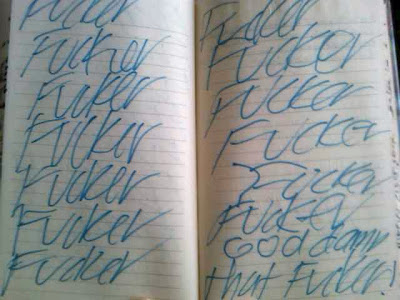 Fucker
Fucker
Fucker
Fucker
Fucker
Fucker
Fucker
Fucker
Fucker
Fucker
Fucker
Fucker
Fucker
God damn
that Fucker!